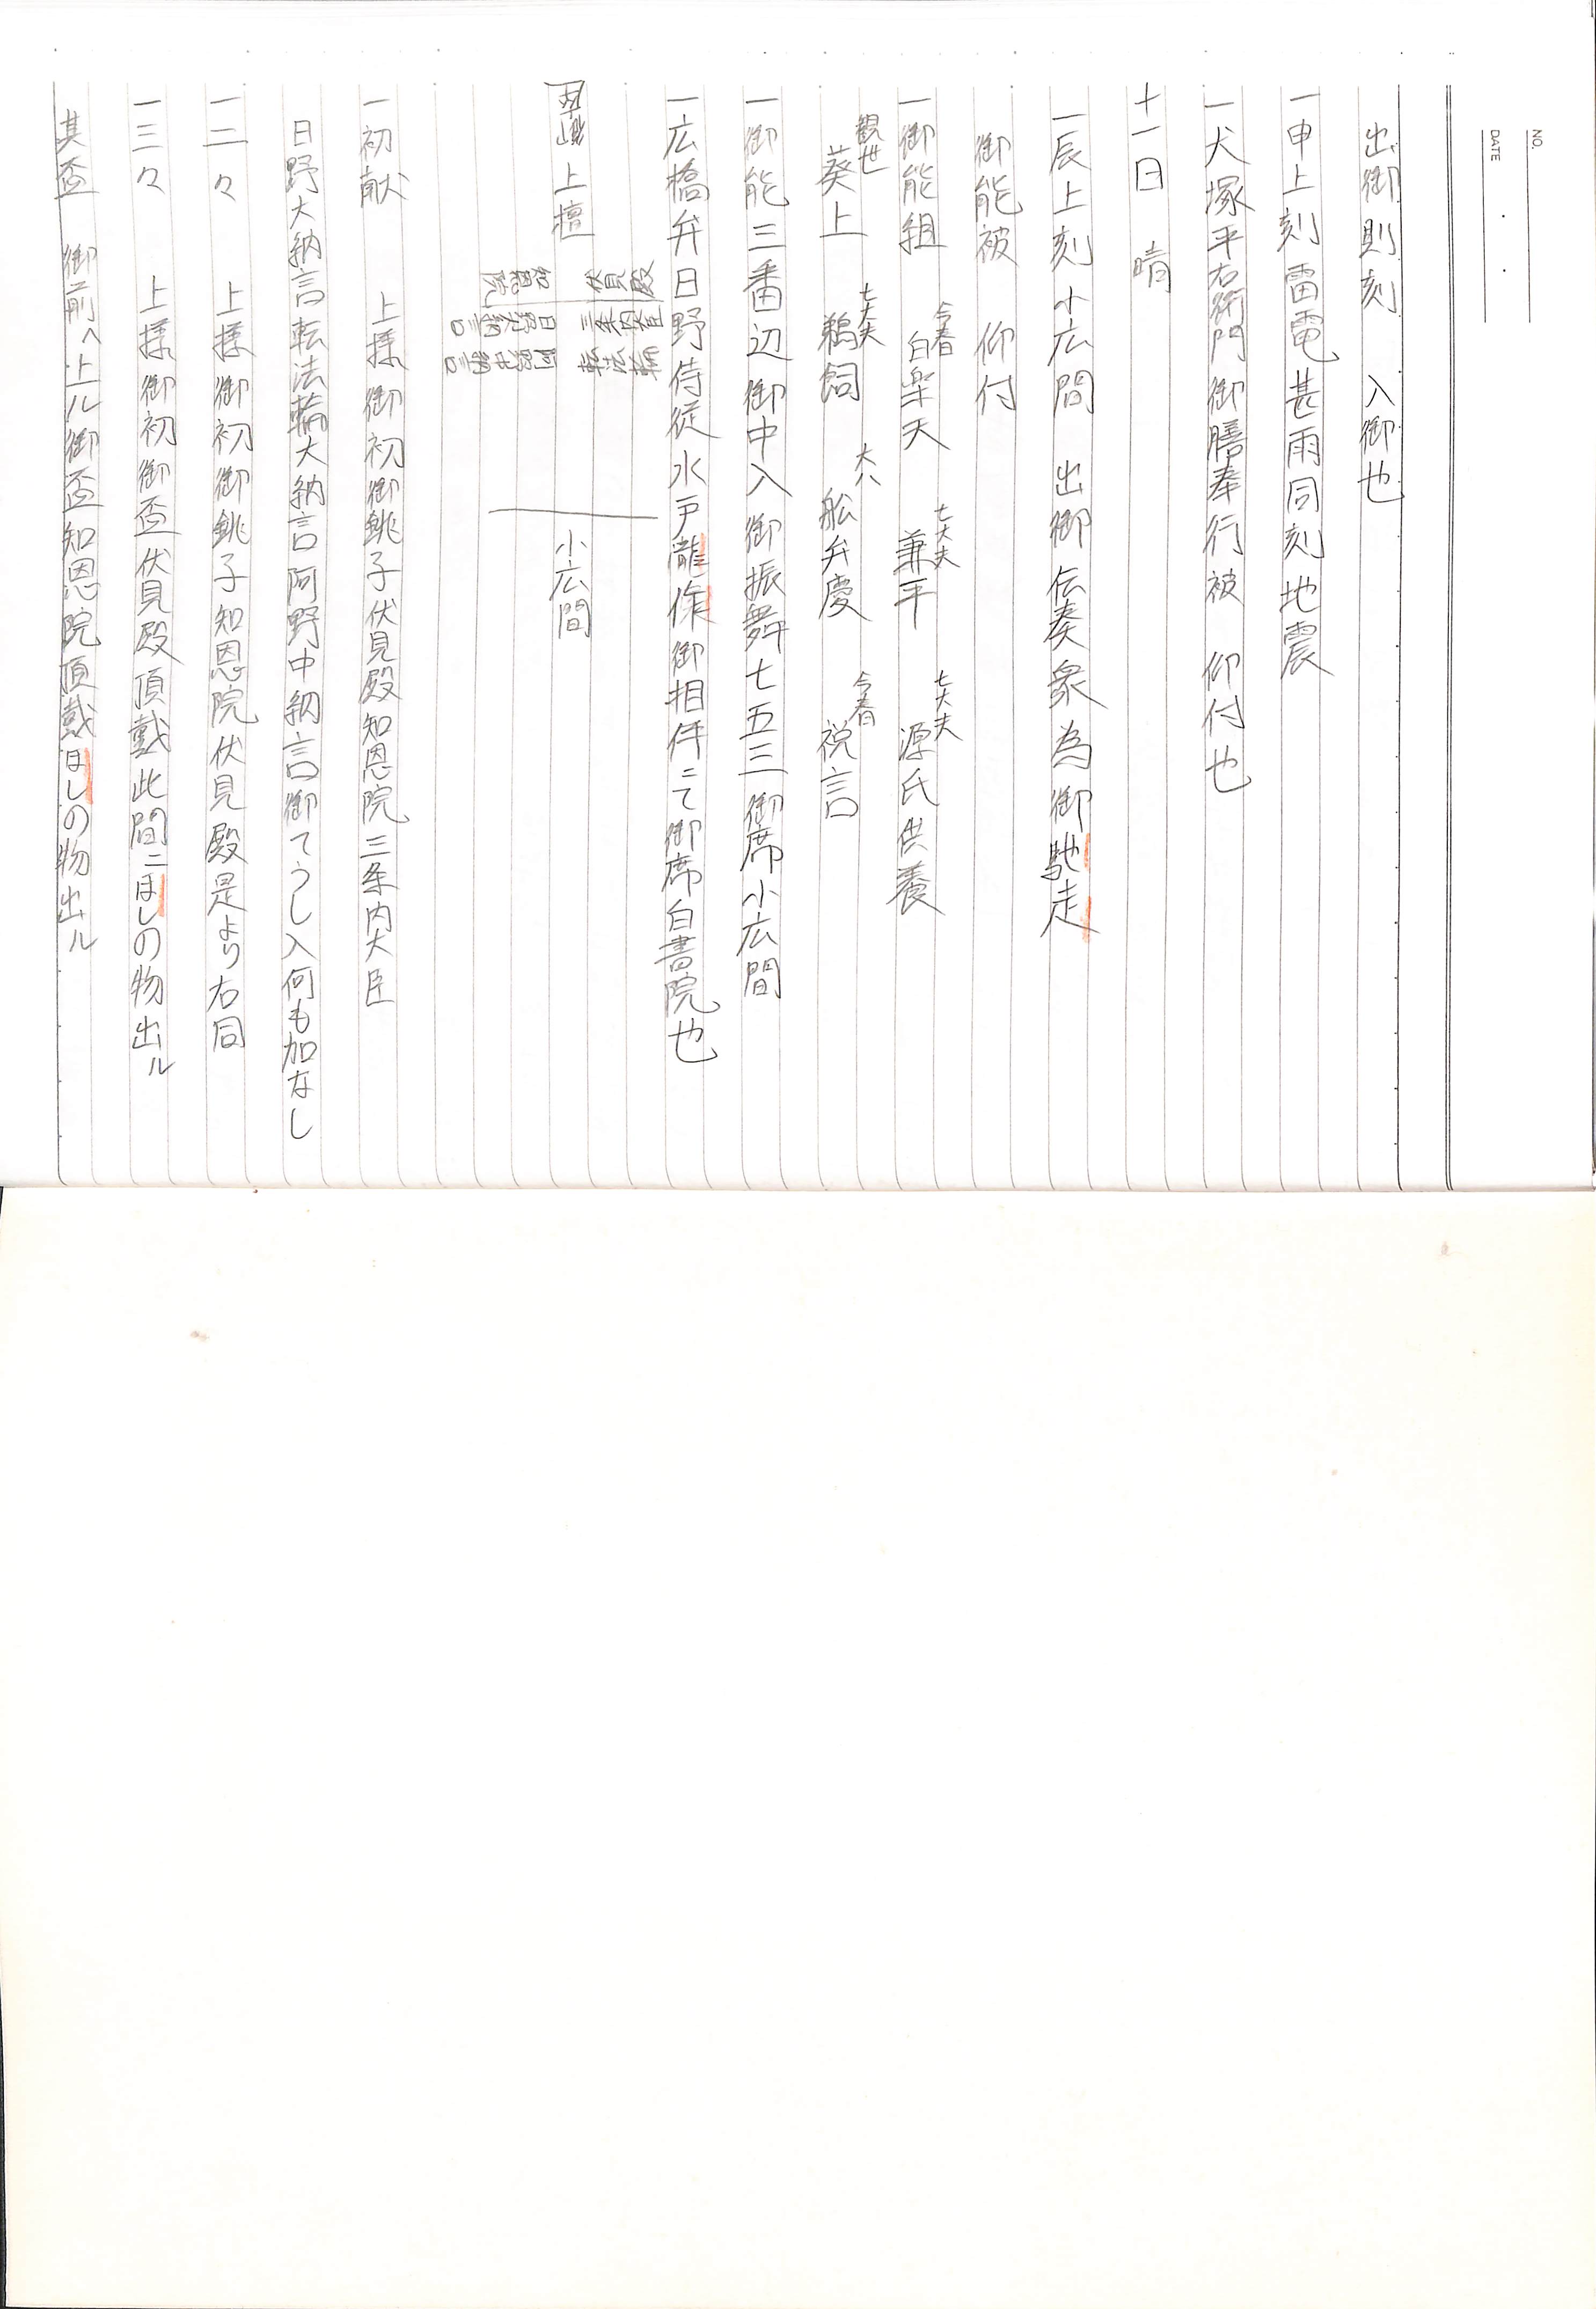 NO.
DATE
出御則刻 入御也
一申上刻雷電甚雨同刻地震
一犬塚平右衛門御膳奉行被 仰付也
十一日 晴
一辰上刻小広間 出御伝奏衆為御馳走
御能被 仰付
今春 七大夫 七大夫
一御能組 白楽天 兼平 源氏供養
観世 七大夫 大八 今春
葵上 鵜飼 舩弁慶 祝言
一御能三番辺御中入御振舞七五三御席小広間
一広橋弁日野侍従水戸龍作御相伴ニて御席白書院也
上檀
伏見殿 知恩院
三条内大臣 日野大納言
転法輪 阿野中納言
小広間
一初献 上様御初御銚子伏見殿知恩院三条内大臣
日野大納言転法輪大納言阿野中納言御てうし入何も加なし
一二々 上様御初御銚子知恩院伏見殿是より右同
一三々 上様御初御盃伏見殿頂戴此間ニほしの物出ル
其盃 御前へ上ル御盃知恩院頂戴ほしの物出ル